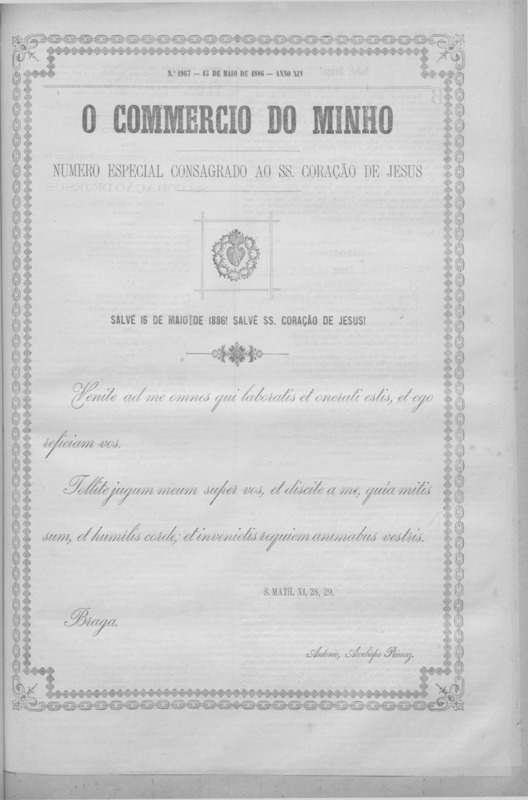 N.º 1967 — 15 DE MAIO DE 1886 — ANNO XIV
O COMMERCIO DO MINHO
NUMERO ESPECIAL CONSAGRADO AO SS. CORAÇÃO DE JESUS
SALVÉ 16 DE MAIO DE 1886! SALVÉ SS. CORAÇÃO DE JESUS!
Venite ad me omnes qui laboratis et onerati estis, et ego
reficiam vos.
Tollite jugum meum super vos, et discite a me, quia mitis
sum, et humilis corde; et invenietis requiem animabus vestris.
S. MATH. XI, 28, 29.
Braga.
Antonio, Arcebispo Primaz.